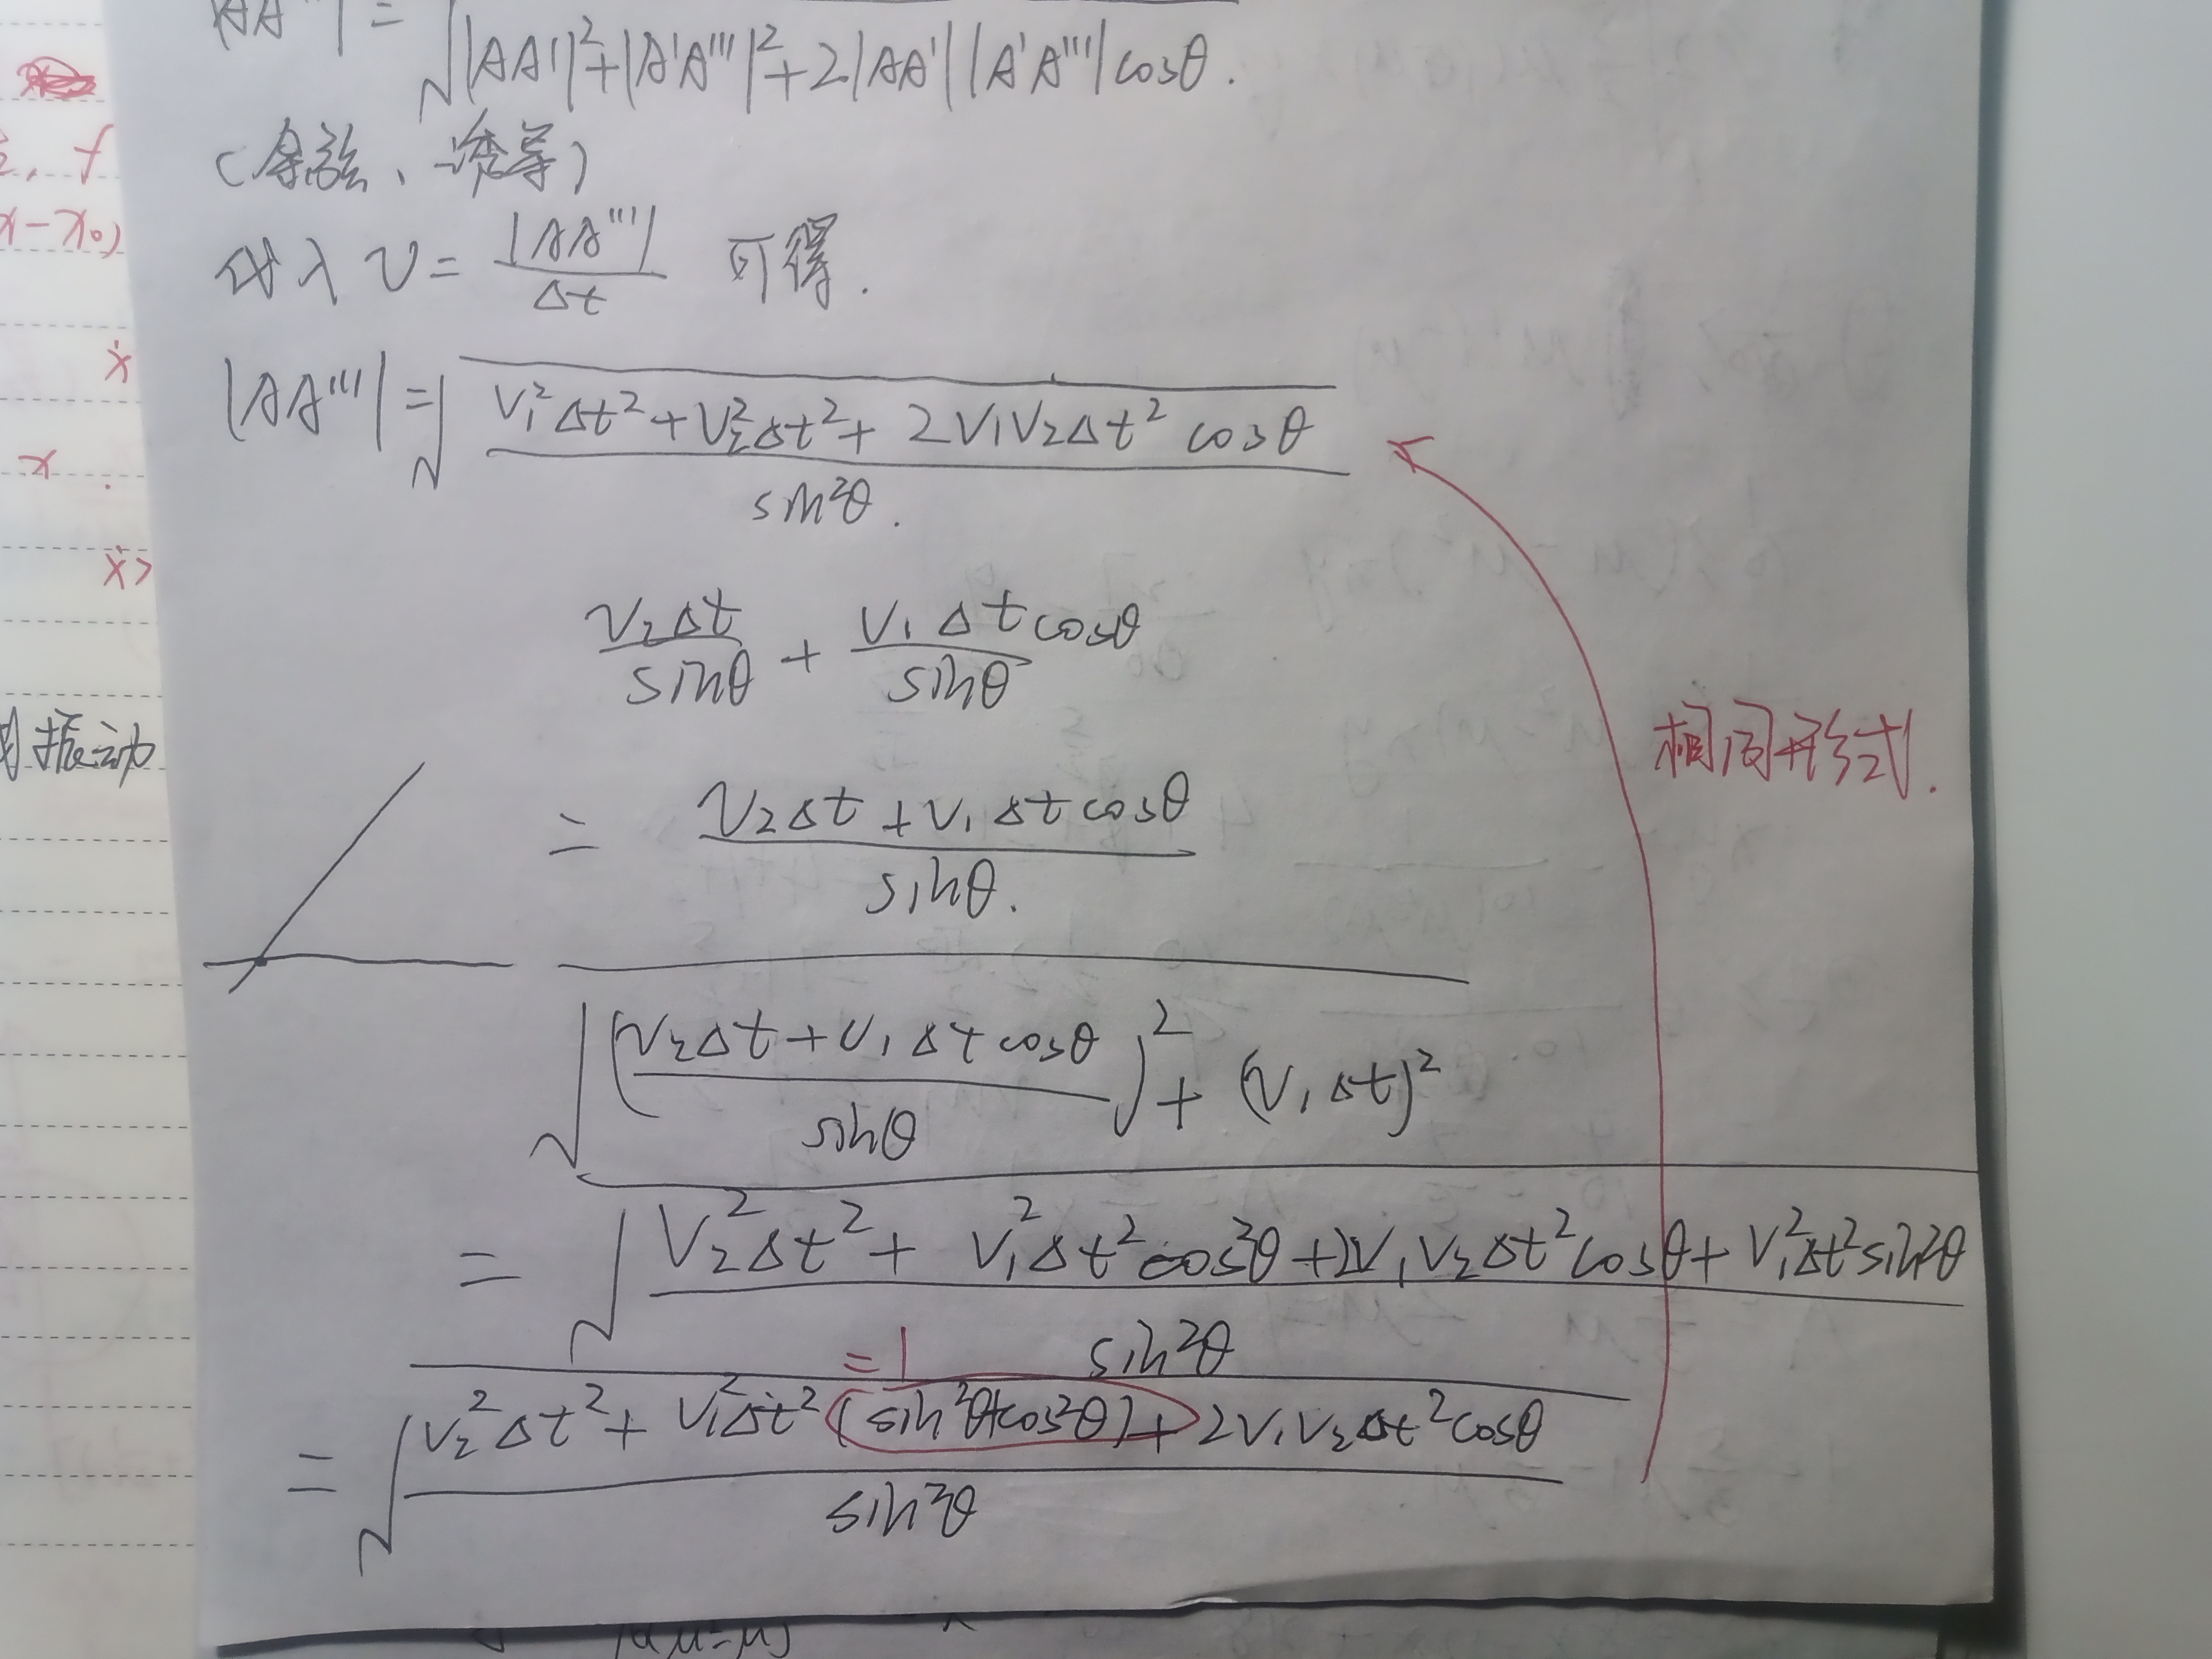 |AA'''| = √(|AA'|²+|A'A'''|²+2|AA'||A'A'''|cosθ).
(余弦、诱导)
代入 v = |AA'''| / Δt 可得.
|AA'''| = √((V₁²Δt²+V₂²Δt²+2V₁V₂Δt² cosθ) / sin²θ).
V₂Δt / sinθ + V₁Δt cosθ / sinθ
= (V₂Δt+V₁Δt cosθ) / sinθ.
相同形式.
√(((V₂Δt+V₁Δt cosθ) / sinθ)² + (V₁Δt)²)
= √((V₂²Δt²+V₁²Δt²cos²θ+2V₁V₂Δt²cosθ+V₁²Δt²sin²θ) / sin²θ)
=1
= √((V₂²Δt²+V₁²Δt²(sin²θ+cos²θ)+2V₁V₂Δt²cosθ) / sin²θ)
f
x-x₀)
ẋ
x .
ẋ>
振动